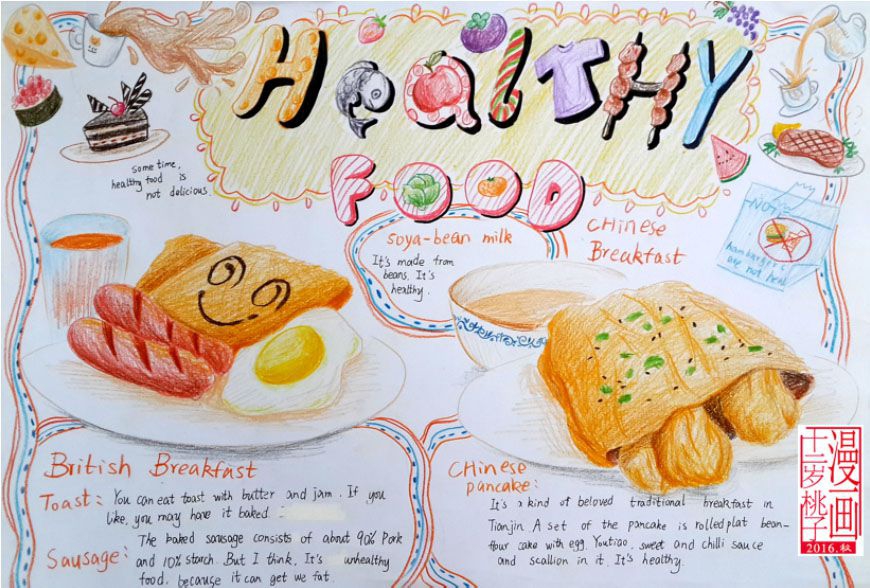 HeAlTHY
FOOD
some time,
healthy food is
not delicious
soya-bean milk
It's made from
beans. It's
healthy.
CHinese
Breakfast
NOTE
hamburgers
are not heal
British Breakfast
Toast: You can eat toast with butter and jam. If you
like, you may have it baked.
Sausage: The baked sausage consists of about 90% Pork
and 10% starch. But I think, It's unhealthy
food, because it can get we fat.
CHinese
pancake:
It's a kind of beloved traditional breakfast in
Tianjin. A set of the pancake is rolled plat bean-
flour cake with egg. Youtiao, sweet and chilli sauce
and scallion in it. It's healthy.
漫画
十二岁桃子
2016.秋